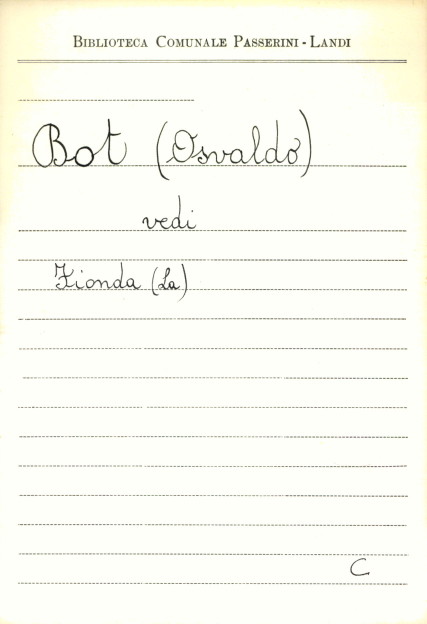 BIBLIOTECA COMUNALE PASSERINI - LANDI
Bot (Osvaldo)
vedi
Fionda (La)
C